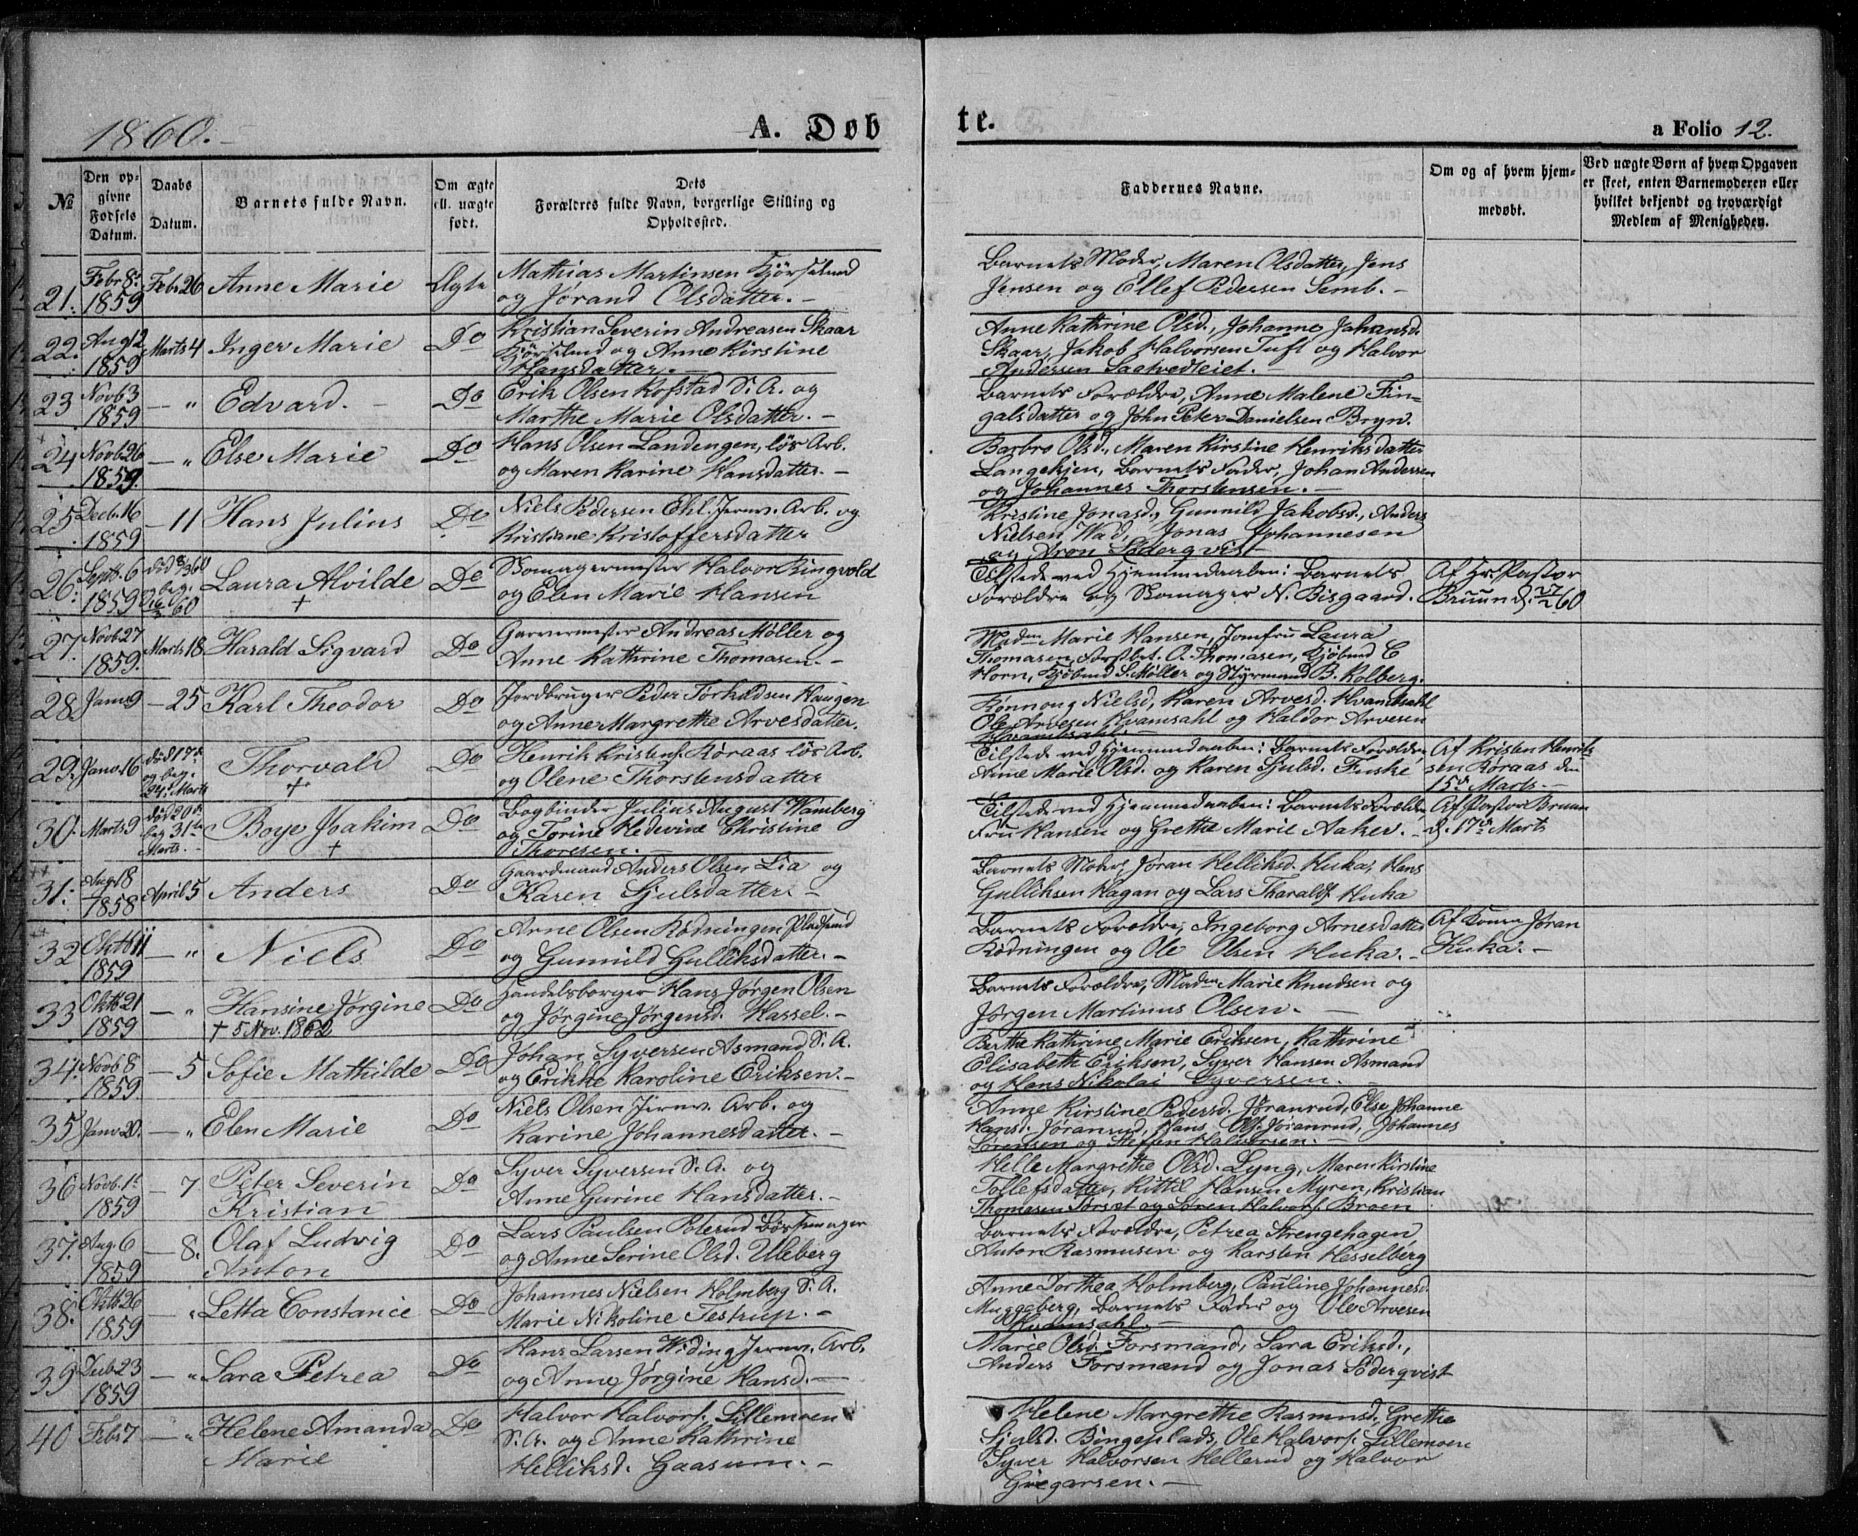 1860.
A. Døb
te.
a Folio 12.
№
Den op-
givne
Fødsels
Datum.
Daabs
Datum.
Barnets fulde Navn.
Om ægte
ell. uægte
født.
Dets
Forældres fulde Navn, borgerlige Stilling og
Opholdssted.
Faddernes Navne.
Om og af hvem hjem-
medøbt.
Ved uægte Børn af hvem Opgaven
er skeet, enten Barnemoderen eller
hvilket bekjendt og troværdigt
Medlem af Menigheden.
21. Febr 8. 1859 Febr 26 Anne Marie Ægte
Mathias Martinsen Kjørselmd
og Jørand Olsdatter. -
Barnets Moder, Maren Olsdatter, Jens
Jensen og Ellef Pedersen Semb. -
22. Aug 12 1859 Marts 4 Inger Marie Do
Kristian Severin Andreasen Skaar
Kjørselmd og Anne Kirstine
Hansdatter. -
Anne Kathrine Olsd., Johanne Johansd.
Skaar, Jakob Halvorsen Tuft og Halvor
Andersen Saatvedteiet. -
23 Novb 3 1859 - " Edvard. - Do
Erik Olsen Kofstad S. A. og
Marthe Marie Olsdatter. -
Barnets Forældre, Anne Malene Fin-
galsdatter og John Peter Danielsen Bryn.
24 Novb. 26 1859. - " Else Marie Do
Hans Olsen Landengen, løs Arb.
og Maren Karine Hansdatter. -
Barbro Olsd., Maren Kirstine Henriksdatter
Langekjen, Barnets Fader, Johan Andersen
og Johannes Thorstensen. -
25 Decb. 16 1859 - 11 Hans Julius Do
Niels Pedersen Ehl. Jernv. Arb. og
Kristiane Kristoffersdatter
Kristine Jonasd., Gunnild Jakobsd., Anders
Nielsen Wad, Jonas Johannesen
og Aron Søderqvist
26. Septb. 6 1859 Laura Alvilde + Do
Skomagermester Halvor Ringvold
og Elen Marie Hansen
Tilstede ved Hjemmedaaben: Barnets
Forældre og Skomager N. Bisgaard.
Af Hr. Pastor
Bruun d. 27/2 60
27. Novb. 27 1859. Marts 18 Harald Sigvard Do
Garvermester Andreas Møller og
Anne Kathrine Thomasen. -
Madm Marie Hansen, Jomfru Laura
Thomasen, Forstbet. O. Thomasen, Kjøbmd C
Horn, Kjøbmd S. Møller og Styrmand B. Kolberg.
28. Janv 9 - 25 Karl Theodor Do
Jordbruger Peder Torkildsen Haugen
og Anne Margrethe Arvesdatter.
Rønnoug Nielsd., Karen Arvesd. Hvamsahl
Ole Arvesen Hvamsahl og Haldor Arvesen
Hvamsahl. -
29. Janv 16 død 17de og beg. 24d. Marts Thorvald + Do
Henrik Kristens. Røraas løs Arb.
og Olene Thorstensdatter
Tilstede ved Hjemmedaaben: Barnets Forældre,
Anne Marie Olsd. og Karen Sjulsd. Fuske
Af Kristen Henrik-
sen Røraas den
15d Marts. -
30. Marts 9 død 20de beg 31te Marts. - Boye Joakim + Do
Bogbinder Julius August Wamberg
og Torine Hedevine Christine
Thoresen. -
Tilstede ved Hjemmedaaben: Barnets Forældre,
Fru Hansen og Grethe Marie Aaker. -
Af Pastor Bruun
d. 17d Marts
31. Aug. 18 1858 April 5 Anders Do
Gaardmand Anders Olsen Lia og
Karen Sjulsdatter. -
Barnets Moder, Jøran Helliksd. Huka, Hans
Gulliksen Hagan og Lars Tharaldss. Huka
32 Oktb 11 1859 - " Niels Do
Arne Olsen Rødningen Pladsmd
og Gunnild Gulliksdatter. -
Barnets Forældre, Ingeborg Arnesdatter
Rødningen og Ole Olsen Huka. -
Af Kona Jøran
Huka. -
33 Oktb 21 1859 - " Hansine Jørgine Do
+ 5 Nov. 1862
Handelsborger Hans Jørgen Olsen
og Jørgine Jørgensd. Hassel. -
Barnets Forældre, Madm Marie Knudsen og
Jørgen Martinus Olsen. -
34. Novb 8 1859 - 5 Sofie Mathilde Do
Johan Syversen Asmand S. A.
og Erikke Karoline Eriksen. -
Berthe Kathrine Marie Eriksen, Kathrine
Elisabeth Eriksen, Syver Hansen Asmand
og Hans Nikolai Syversen. -
35 Janv 20. - " Elen Marie Do
Niels Olsen Jernv. Arb. og
Karine Johannesdatter. -
Anne Kirstine Pedersd. Jøranrud, Else Johanne
Hansd. Jøranrud, Hans Ols. Jøranrud, Johannes
Sørensen og Steffen Halvorsen. -
36 Novb. 1t 1859 - 7 Peter Severin
Kristian Do
Syver Syversen S. A. og
Anne Gurine Hansdatter. -
Helle Margrethe Olsd. Lyng, Maren Kirstine
Tollefsdatter, Kittil Hansen Myren, Kristian
Thomasen Torset og Søren Halvors. Broen
37. Aug. 6 1859 - 8. Olaf Ludvig
Anton Do
Lars Paulsen Poterud Børsemager
og Anne Serine Olsd. Uleberg
Barnets Forældre, Petrea Strengehagen,
Anton Rasmusen og Karsten Hesselberg
38. Oktb 26 1859 - " Letta Constance Do
Johannes Nielsen Holmberg S. A.
Marie Nikoline Testrup. -
Anne Dorthea Holmberg, Pauline Johannesd.
Muggeberg, Barnets Fader og Ole Arvesen
Hvamsahl. -
39 Decb 23 1859 - " Sara Petrea Do
Hans Larsen Widing Jernv. Arb.
og Anne Jørgine Hansd. -
Marie Olsd. Forsmand, Sara Eriksd.,
Anders Forsmand og Jonas Søderqvist
40 Febr 7 - " Helene Amanda
Marie Do
Halvor Halvors. Lillemoen
S. A. og Anne Kathrine
Helliksd. Gaasum. -
Helene Margrethe Rasmusd., Grethe
Sjulsd. Bingeplads, Ole Halvors. Lillemoen
Syver Halvorsen Hellerud og Halvor
Gregarsen. -